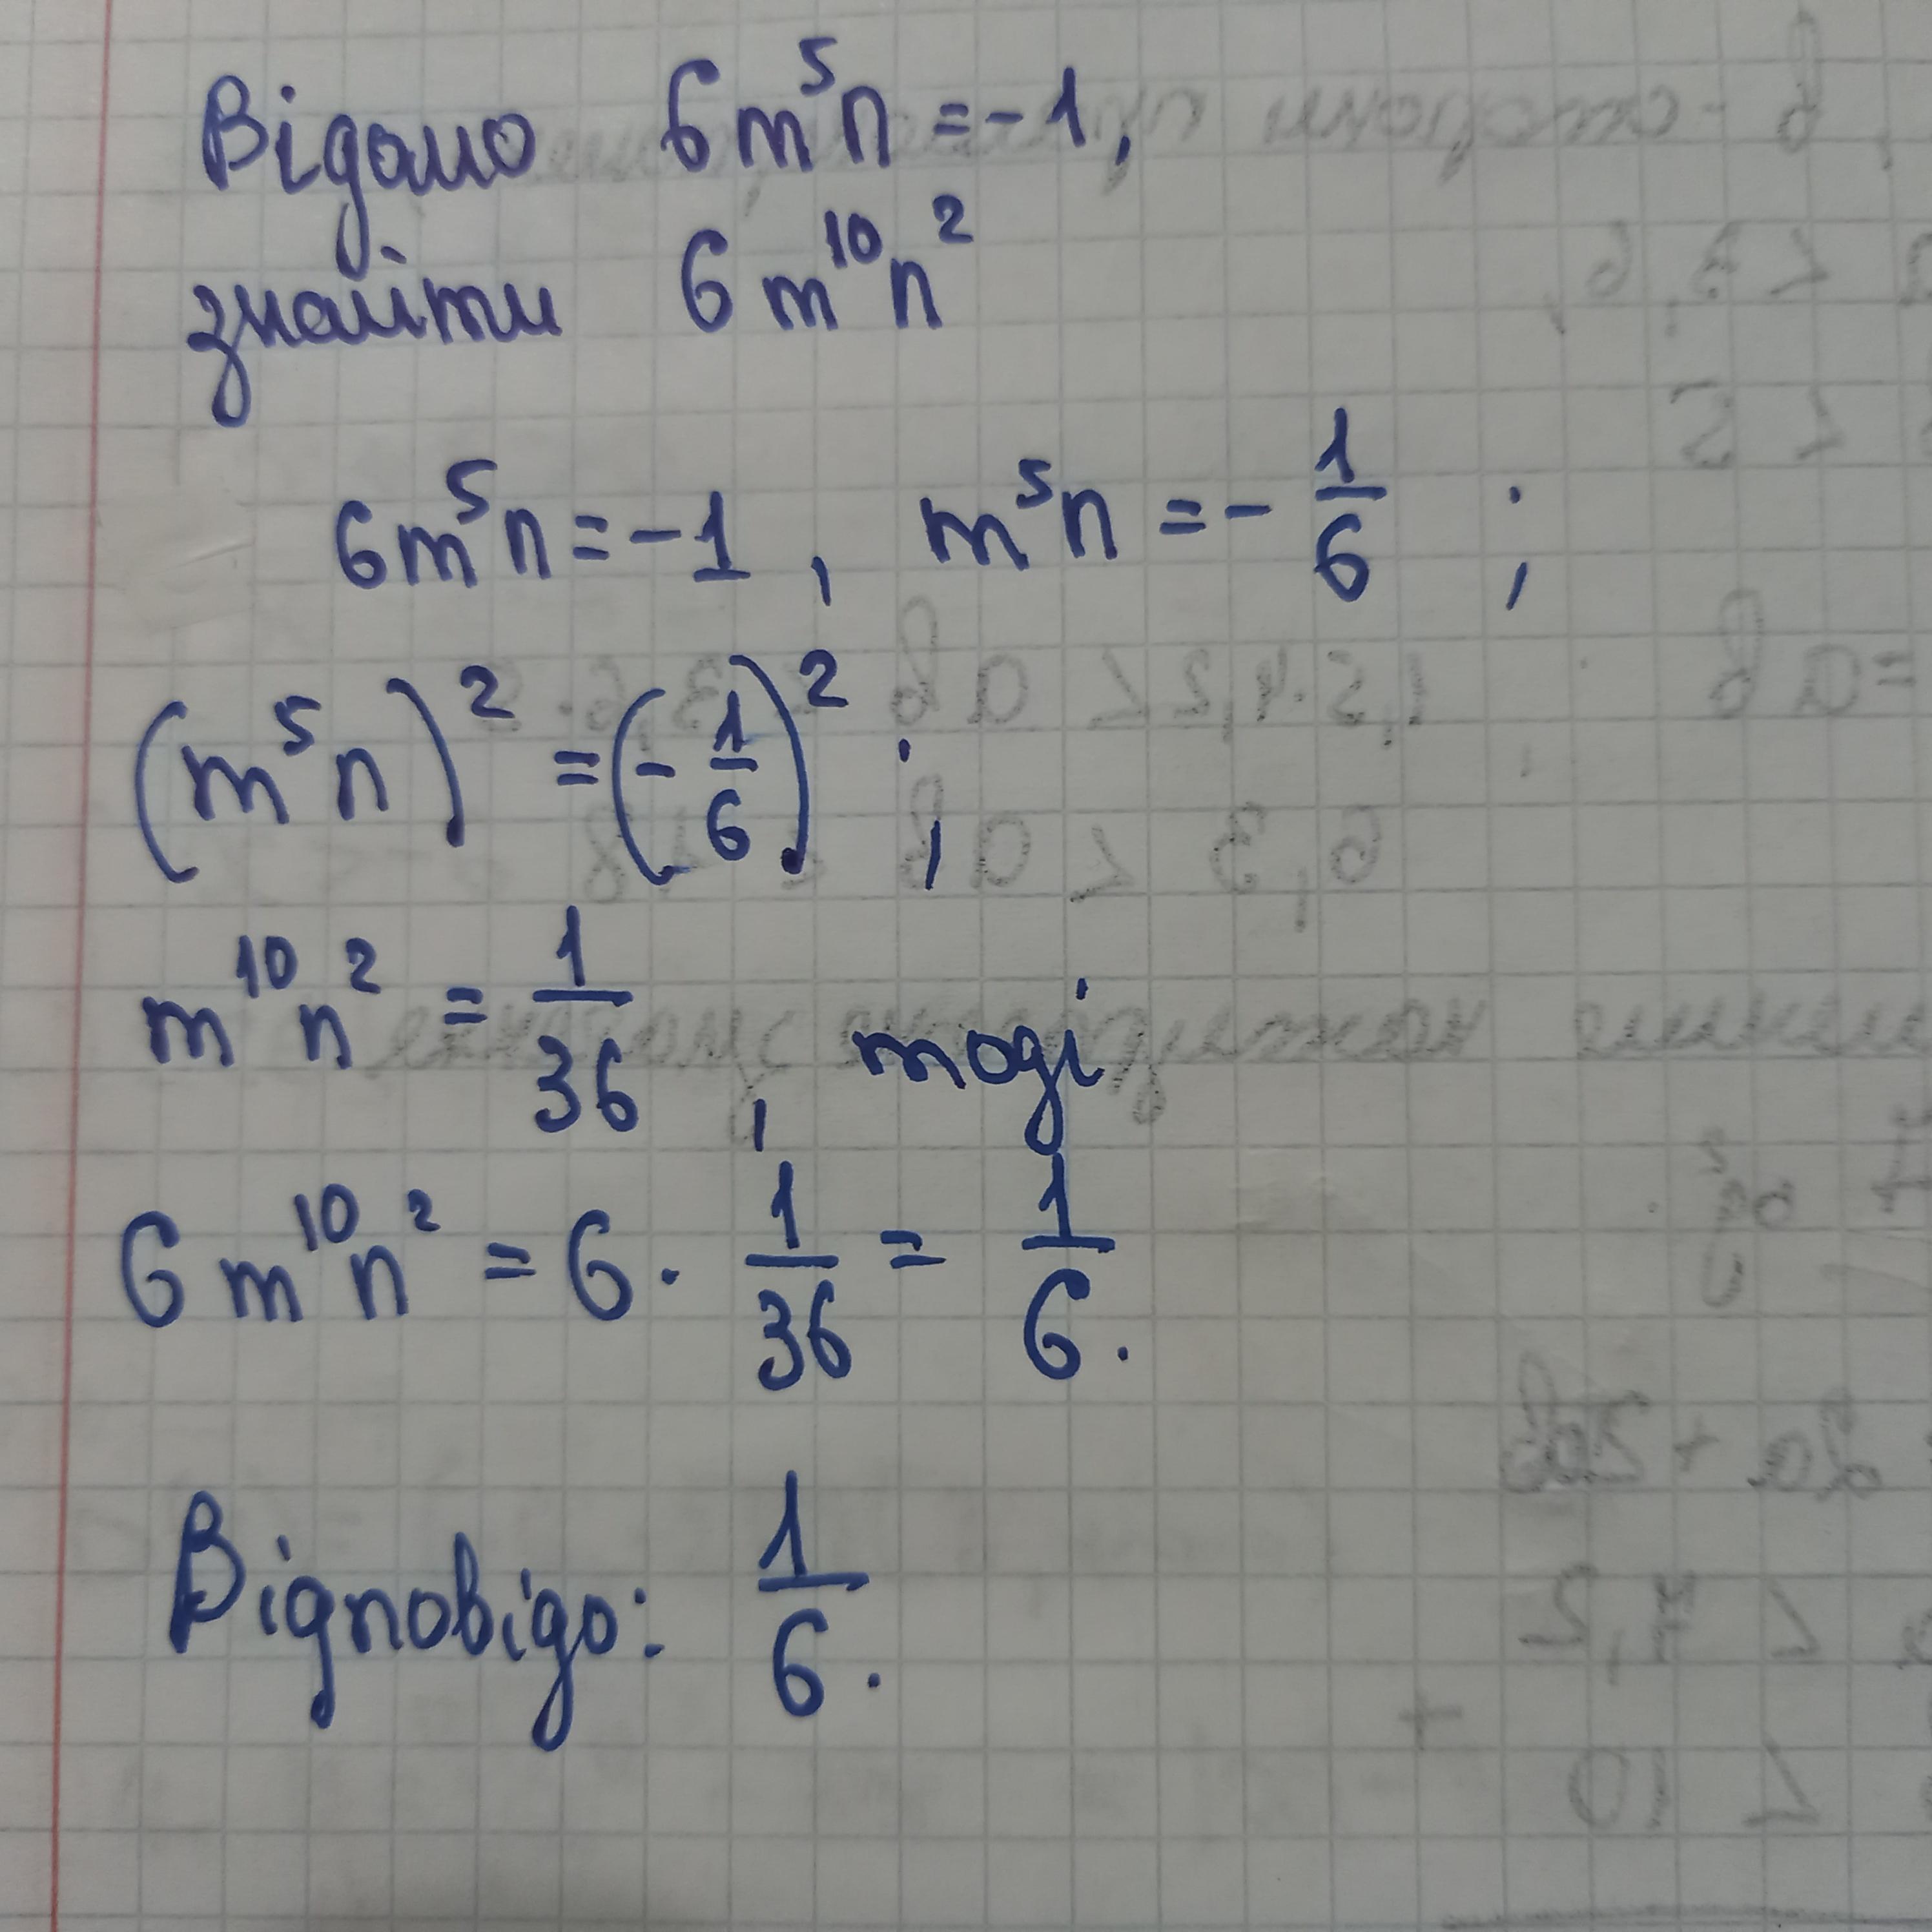 Відомо 6m⁵n = -1,
знайти 6m¹⁰n²
6m⁵n = -1, m⁵n = -1/6;
(m⁵n)² = (-1/6)²;
m¹⁰n² = 1/36, тоді
6m¹⁰n² = 6 · 1/36 = 1/6.
Відповідь: 1/6.